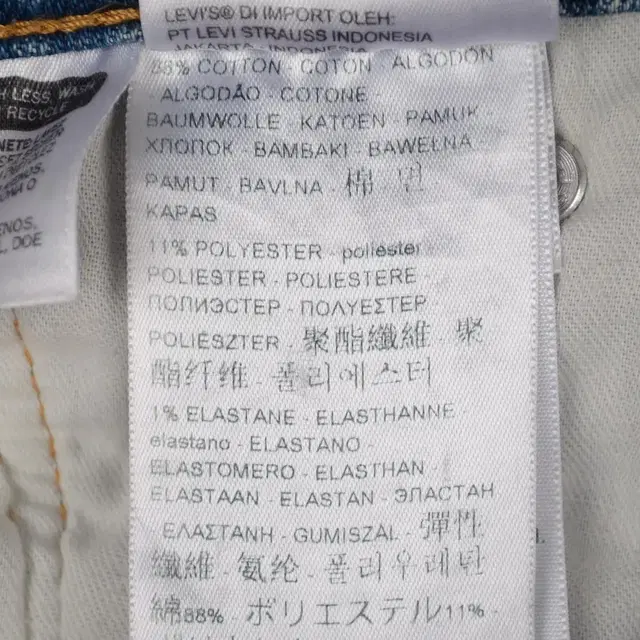 LEVI'S® DI IMPORT OLEH:
PT LEVI STRAUSS INDONESIA
COTTON - COTON - ALGODÓN
ALGODÃO - COTONE -
BAUMWOLLE - KATOEN - PAMUK -
ХЛОПОК - BAMBAKI - BAWEŁNA -
PAMUT - BAVLNA - 棉 - 면
KAPAS
11% POLYESTER - poliéster
POLIESTER - POLIESTERE -
ПОЛИЭСТЕР - ΠΟΛΥΕΣΤΕΡ -
POLIÉSZTER - 聚酯纖維 - 聚
酯纤维 - 폴리에스터
1% ELASTANE - ELASTHANNE -
elastano - ELASTANO -
ELASTOMERO - ELASTHAN -
ELASTAAN - ELASTAN - ЭЛАСТАН
- ΕΛΑΣΤΑΝΗ - GUMISZÁL - 彈性
纖維 - 氨纶 - 폴리우레탄
綿88% - ポリエステル11% -
RECYCLE
NOS.
DOE